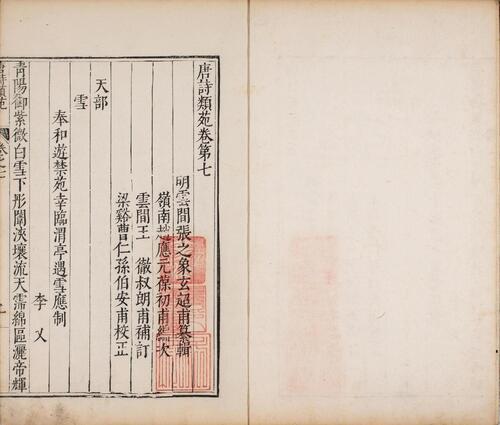 唐詩類苑卷第七
明雲間張之象玄超甫纂輯
嶺南趙應元葆初甫編次
雲間王　徹叔朗甫補訂
梁谿曹仁孫伯安甫校正
天部
雪
奉和遊禁苑幸臨渭亭遇雪應制
李乂
青陽御紫微白雪下彤闈浹壤流天霈綿區灑帝輝
唐詩類苑